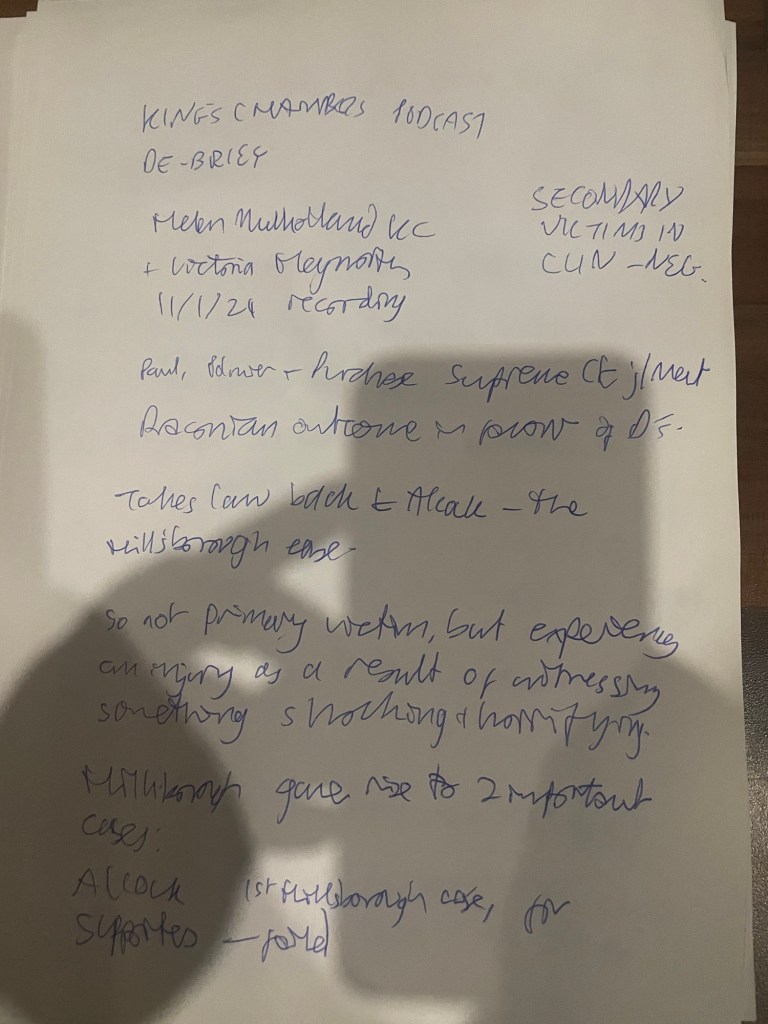 KINGS CHAMBERS PODCAST
DE-BRIEF
SECONDARY
VICTIMS IN
CLIN-NEG.
Helen Mulholland KC
+ Victoria Heynorth
11/1/24 recording
Paul, Polmear + Purchase Supreme Ct j/ment
Draconian outcome in favour of Ds.
Takes law back to Alcock - the
Hillsborough case
so not primary victim, but experiences
an injury as a result of witnessing
something shocking + horrifying.
Hillsborough gave rise to 2 important
cases:
Alcock 1st Hillsborough case, for
supporters - failed